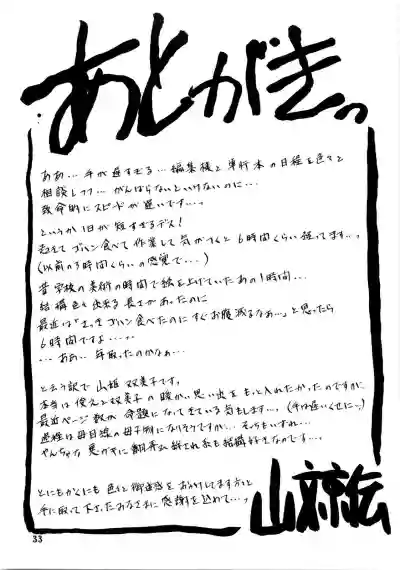 あとがきっ
ああ…手が遅すぎる…編集様と単行本の日程を色々と
相談しつつ…がんばらないといけないのに…
致命的にスピードが遅いです…っ
というか1日が短すぎるデス!
起きてゴハン食べて作業して気がつくと6時間くらい経ってます…っ
(以前の3時間くらいの感覚で…)
昔学校の美術の時間で絵を上げていたあの1時間…
結構色々出来る長さがあったのに
最近は「え。ゴハン食べたのにすぐお腹減るなぁ…」と思ったら
6時間ですよ……っ
…ああ…年取ったのかなぁ…
と云う訳で山姫双美子です。
本当は使えと双美子の暖かい思い出をもっと入れたかったのですが
最近ページ数が命題になってきている気もします…。(手は遅いくせに…)
過程は母目線の母子物になりそうですが…そちらもいずれ…
やんちゃな悪ガキに翻弄される
も結構好きなのです…っ
とにもかくにも色々と御迷惑をおかけしてます方々と
手に取って下さったみなさまに感謝を込めて…っ
山
伝
33